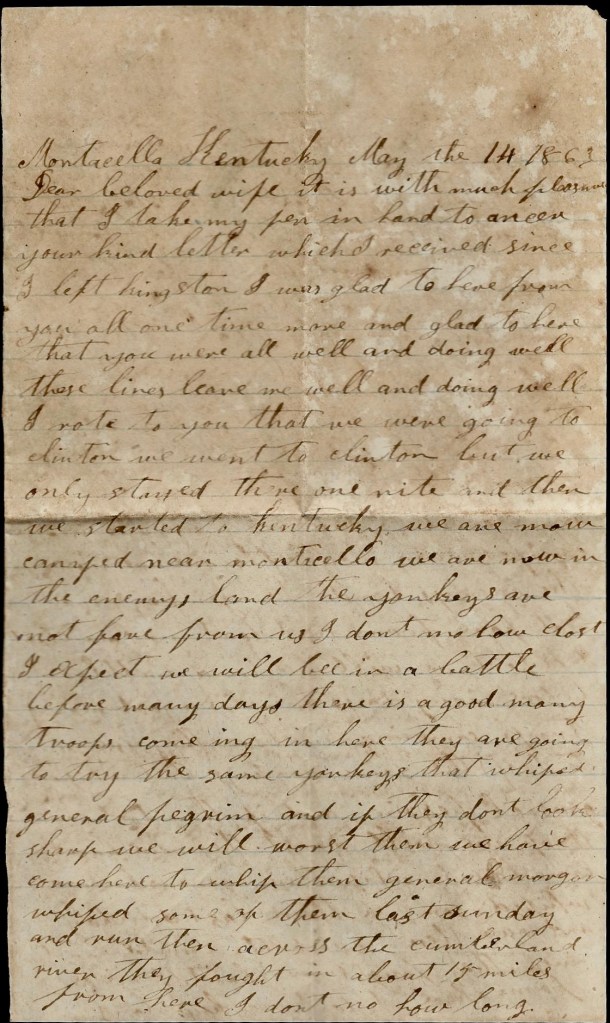 Monticella Kentucky May the 14 1863
Dear beloved wife it is with much pleasure
that I take my pen in hand to ancer
your kind letter which I received since
I left kingston I was glad to here from
you all one time more and glad to here
that you were all well and doing well
these lines leave me well and doing well
I rote to you that we were going to
clinton we went to clinton but we
only stayed there one nite and then
we started to kentucky we are now
camped near monticello we are now in
the enemys land the yankeys are
not fare from us I dont no how clost
I expect we will bee in a battle
before many days there is a good many
troops come ing in here they are going
to try the same yankeys that whiped
general pegrim and if they dont look
sharp we will worst them we have
come here to whip them general morgan
whiped some of them last sunday
and run then across the cumberland
river they fought in about 15 miles
from here I dont no how long